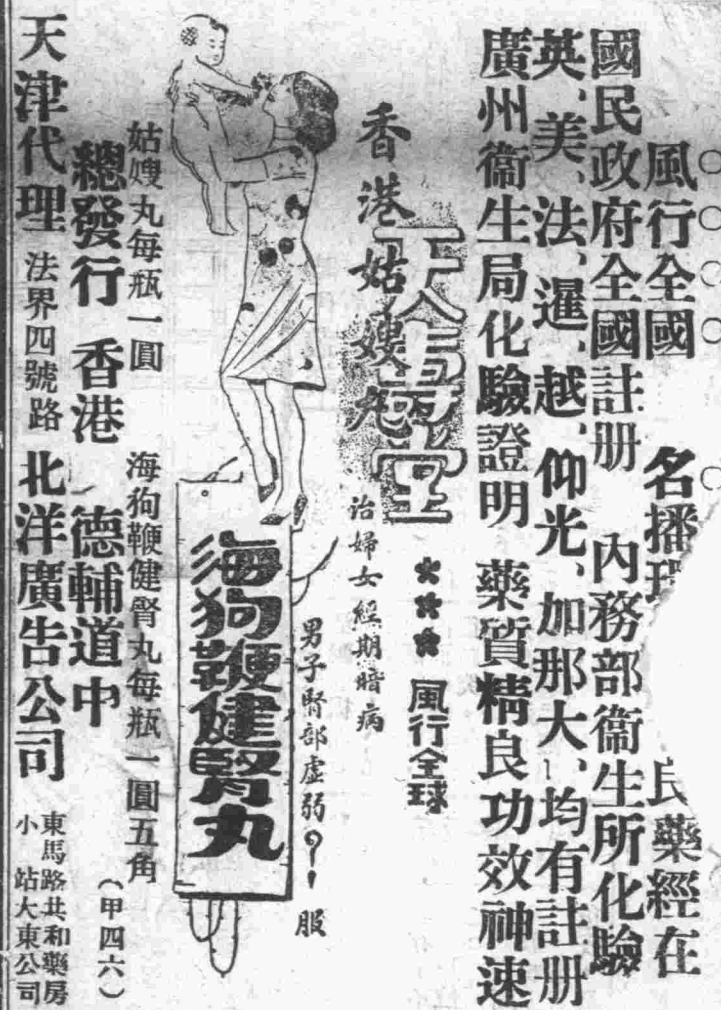 風行全國 名播 藥經在
國民政府全國註册 內務部衞生所化驗
英、美、法、暹、越、仰光、加那大、均有註册
廣州衞生局化驗證明 藥質精良功效神速
天壽堂 風行全球
香港姑嫂丸 治婦女經期暗病
男子腎部虛弱?! 服
海狗鞭健腎丸
姑嫂丸每瓶一圓 海狗鞭健腎丸每瓶一圓五角
總發行 香港 德輔道中 (甲四六)
天津代理 法界四號路 北洋廣告公司
東馬路共和藥房
小站大東公司